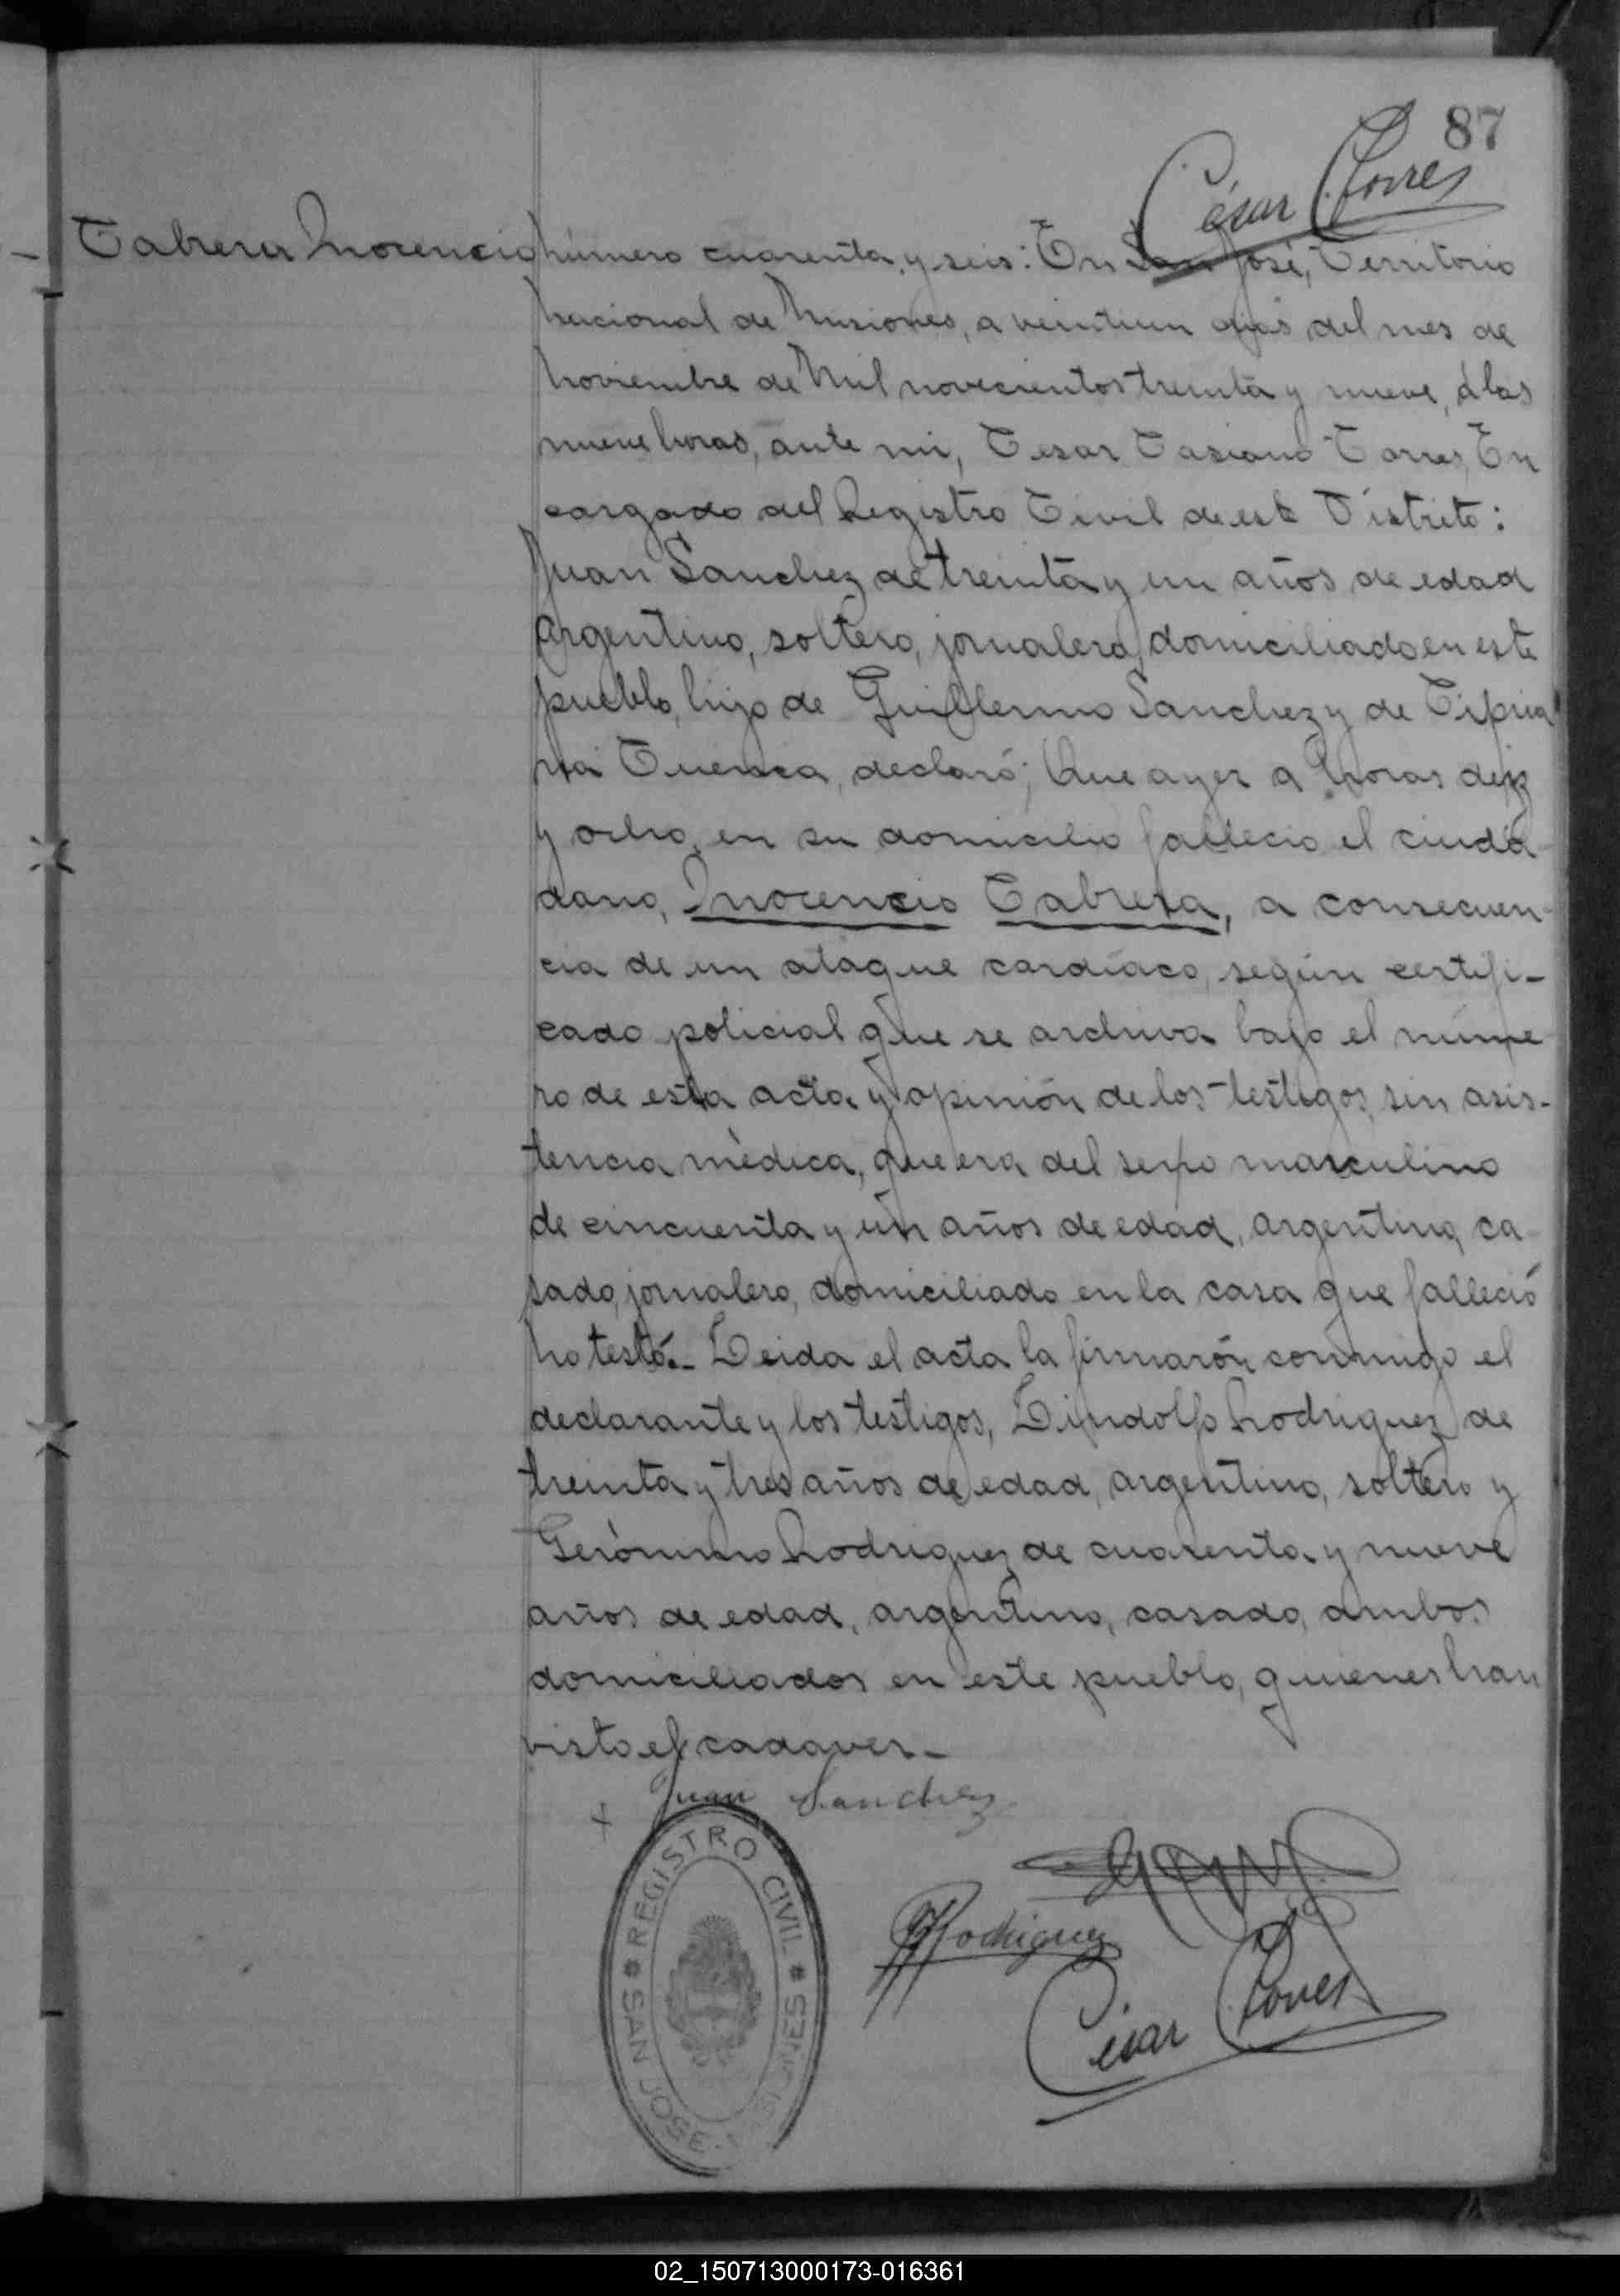 87
César Torres
Cabrera Inocencio
Número cuarenta y seis: En San José, Territorio
Nacional de Misiones, a veintiun dias del mes de
Noviembre de Mil novecientos treinta y nueve, á las
nueve horas, ante mi, Cesar Casiano Torres, En
cargado del Registro Civil de este Distrito:
Juan Sanchez de treinta y un años de edad
Argentino, soltero, jornalero, domiciliado en este
pueblo, hijo de Guillermo Sanchez y de Cipria
na Cuenca, declaró; Que ayer a horas diez
y ocho, en su domicilio fallecio el ciuda
dano, Inocencio Cabrera, a consecuen
cia de un ataque cardíaco, según certifi-
cado policial que se archiva bajo el núme
ro de esta acta y opinión de los testigos, sin asis-
tencia mèdica, que era del sexo masculino
de cincuenta y un años de edad, argentino, ca
sado, jornalero, domiciliado en la casa que falleció
No testó.- Leida el acta la firmarón conmigo el
declarante y los testigos, Lindolfo Rodriguez de
treinta y tres años de edad, argentino, soltero y
Gerònimo Rodriguez de cuarenta y nueve
años de edad, argentino, casado, ambos
domiciliados en este pueblo, quienes han
visto el cadaver.-
+ Juan Sanchez
Rodriguez
César Torres
REGISTRO CIVIL * SAN JOSE - MISIONES *
02_150713000173-016361